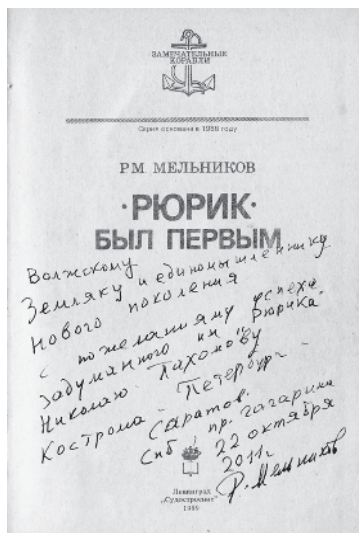 ЗАМЕЧАТЕЛЬНЫЕ
КОРАБЛИ
Серия основана в 1986 году
Р.М. МЕЛЬНИКОВ
·РЮРИК·
БЫЛ ПЕРВЫМ
Волжскому
Земляку и единомышленнику
Нового поколения
с пожеланиями успеха
задуманного им "Рюрика"
Николаю Пахомову
Кострома - Петербург -
Саратов.
Спб пр. Гагарина
22 октября
2011г
Р. Мельников
Ленинград
„Судостроение"
1989